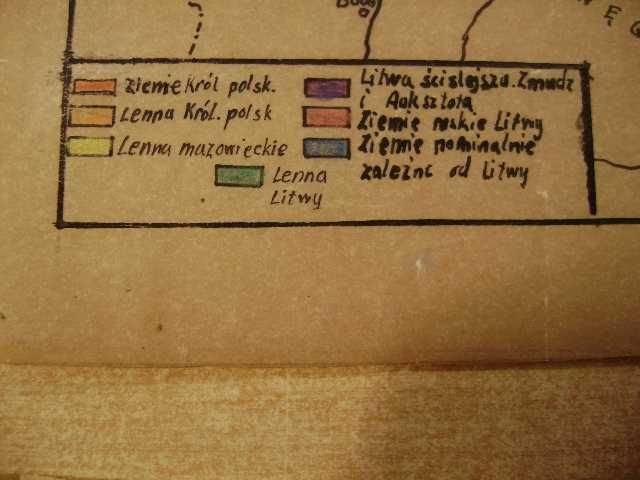 Ziemie Król polsk.
Lenna Król. polsk
Lenna mazowieckie
Lenna
Litwy
Litwa ściślejsza. Żmudź
i Auksztota
Ziemie ruskie Litwy
Ziemie nominalnie
zależne od Litwy